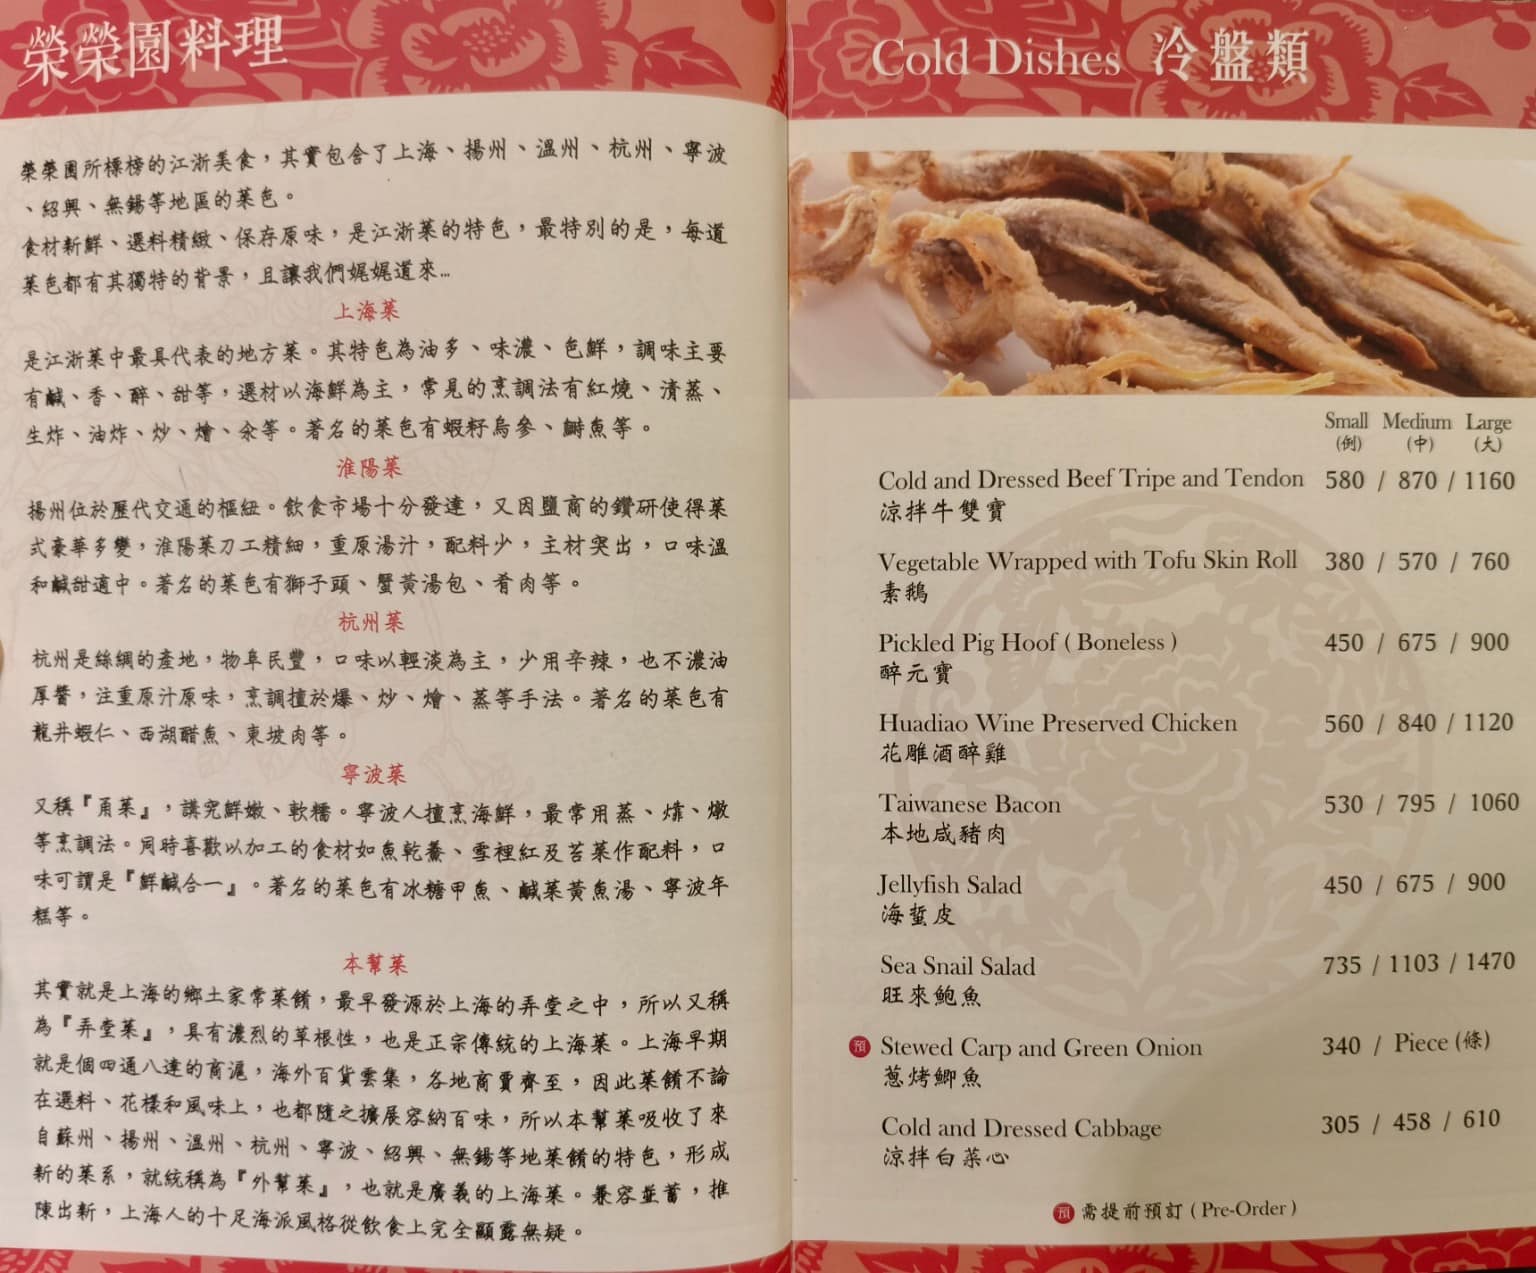 榮榮園料理
榮榮園所標榜的江浙美食，其實包含了上海、揚州、溫州、杭州、寧波
、紹興、無錫等地區的菜色。
食材新鮮、選料精緻、保存原味，是江浙菜的特色，最特別的是，每道
菜色都有其獨特的背景，且讓我們娓娓道來…
上海菜
是江浙菜中最具代表的地方菜。其特色為油多、味濃、色鮮，調味主要
有鹹、香、醉、甜等，選材以海鮮為主，常見的烹調法有紅燒、清蒸、
生炸、油炸、炒、燴、汆等。著名的菜色有蝦籽烏參、鰣魚等。
淮陽菜
揚州位於歷代交通的樞紐。飲食市場十分發達，又因鹽商的鑽研使得菜
式豪華多變，淮陽菜刀工精細，重原湯汁，配料少，主材突出，口味溫
和鹹甜適中。著名的菜色有獅子頭、蟹黃湯包、肴肉等。
杭州菜
杭州是絲綢的產地，物阜民豐，口味以輕淡為主，少用辛辣，也不濃油
厚醬，注重原汁原味，烹調擅於爆、炒、燴、蒸等手法。著名的菜色有
龍井蝦仁、西湖醋魚、東坡肉等。
寧波菜
又稱『甬菜』，講究鮮嫩、軟糯。寧波人擅烹海鮮，最常用蒸、㸆、燉
等烹調法。同時喜歡以加工的食材如魚乾鯗、雪裡紅及苔菜作配料，口
味可謂是『鮮鹹合一』。著名的菜色有冰糖甲魚、鹹菜黃魚湯、寧波年
糕等。
本幫菜
其實就是上海的鄉土家常菜餚，最早發源於上海的弄堂之中，所以又稱
為『弄堂菜』，具有濃烈的草根性，也是正宗傳統的上海菜。上海早期
就是個四通八達的商滬，海外百貨雲集，各地商賈齊至，因此菜餚不論
在選料、花樣和風味上，也都隨之擴展容納百味，所以本幫菜吸收了來
自蘇州、揚州、溫州、杭州、寧波、紹興、無錫等地菜餚的特色，形成
新的菜系，就統稱為『外幫菜』，也就是廣義的上海菜。兼容並蓄，推
陳出新，上海人的十足海派風格從飲食上完全顯露無疑。
Cold Dishes 冷盤類
Small Medium Large
(例) (中) (大)
Cold and Dressed Beef Tripe and Tendon 580 / 870 / 1160
涼拌牛雙寶
Vegetable Wrapped with Tofu Skin Roll 380 / 570 / 760
素鵝
Pickled Pig Hoof ( Boneless ) 450 / 675 / 900
醉元寶
Huadiao Wine Preserved Chicken 560 / 840 / 1120
花雕酒醉雞
Taiwanese Bacon 530 / 795 / 1060
本地咸豬肉
Jellyfish Salad 450 / 675 / 900
海蜇皮
Sea Snail Salad 735 / 1103 / 1470
旺來鮑魚
預 Stewed Carp and Green Onion 340 / Piece (條)
蔥烤鯽魚
Cold and Dressed Cabbage 305 / 458 / 610
涼拌白菜心
預 需提前預訂 ( Pre-Order )